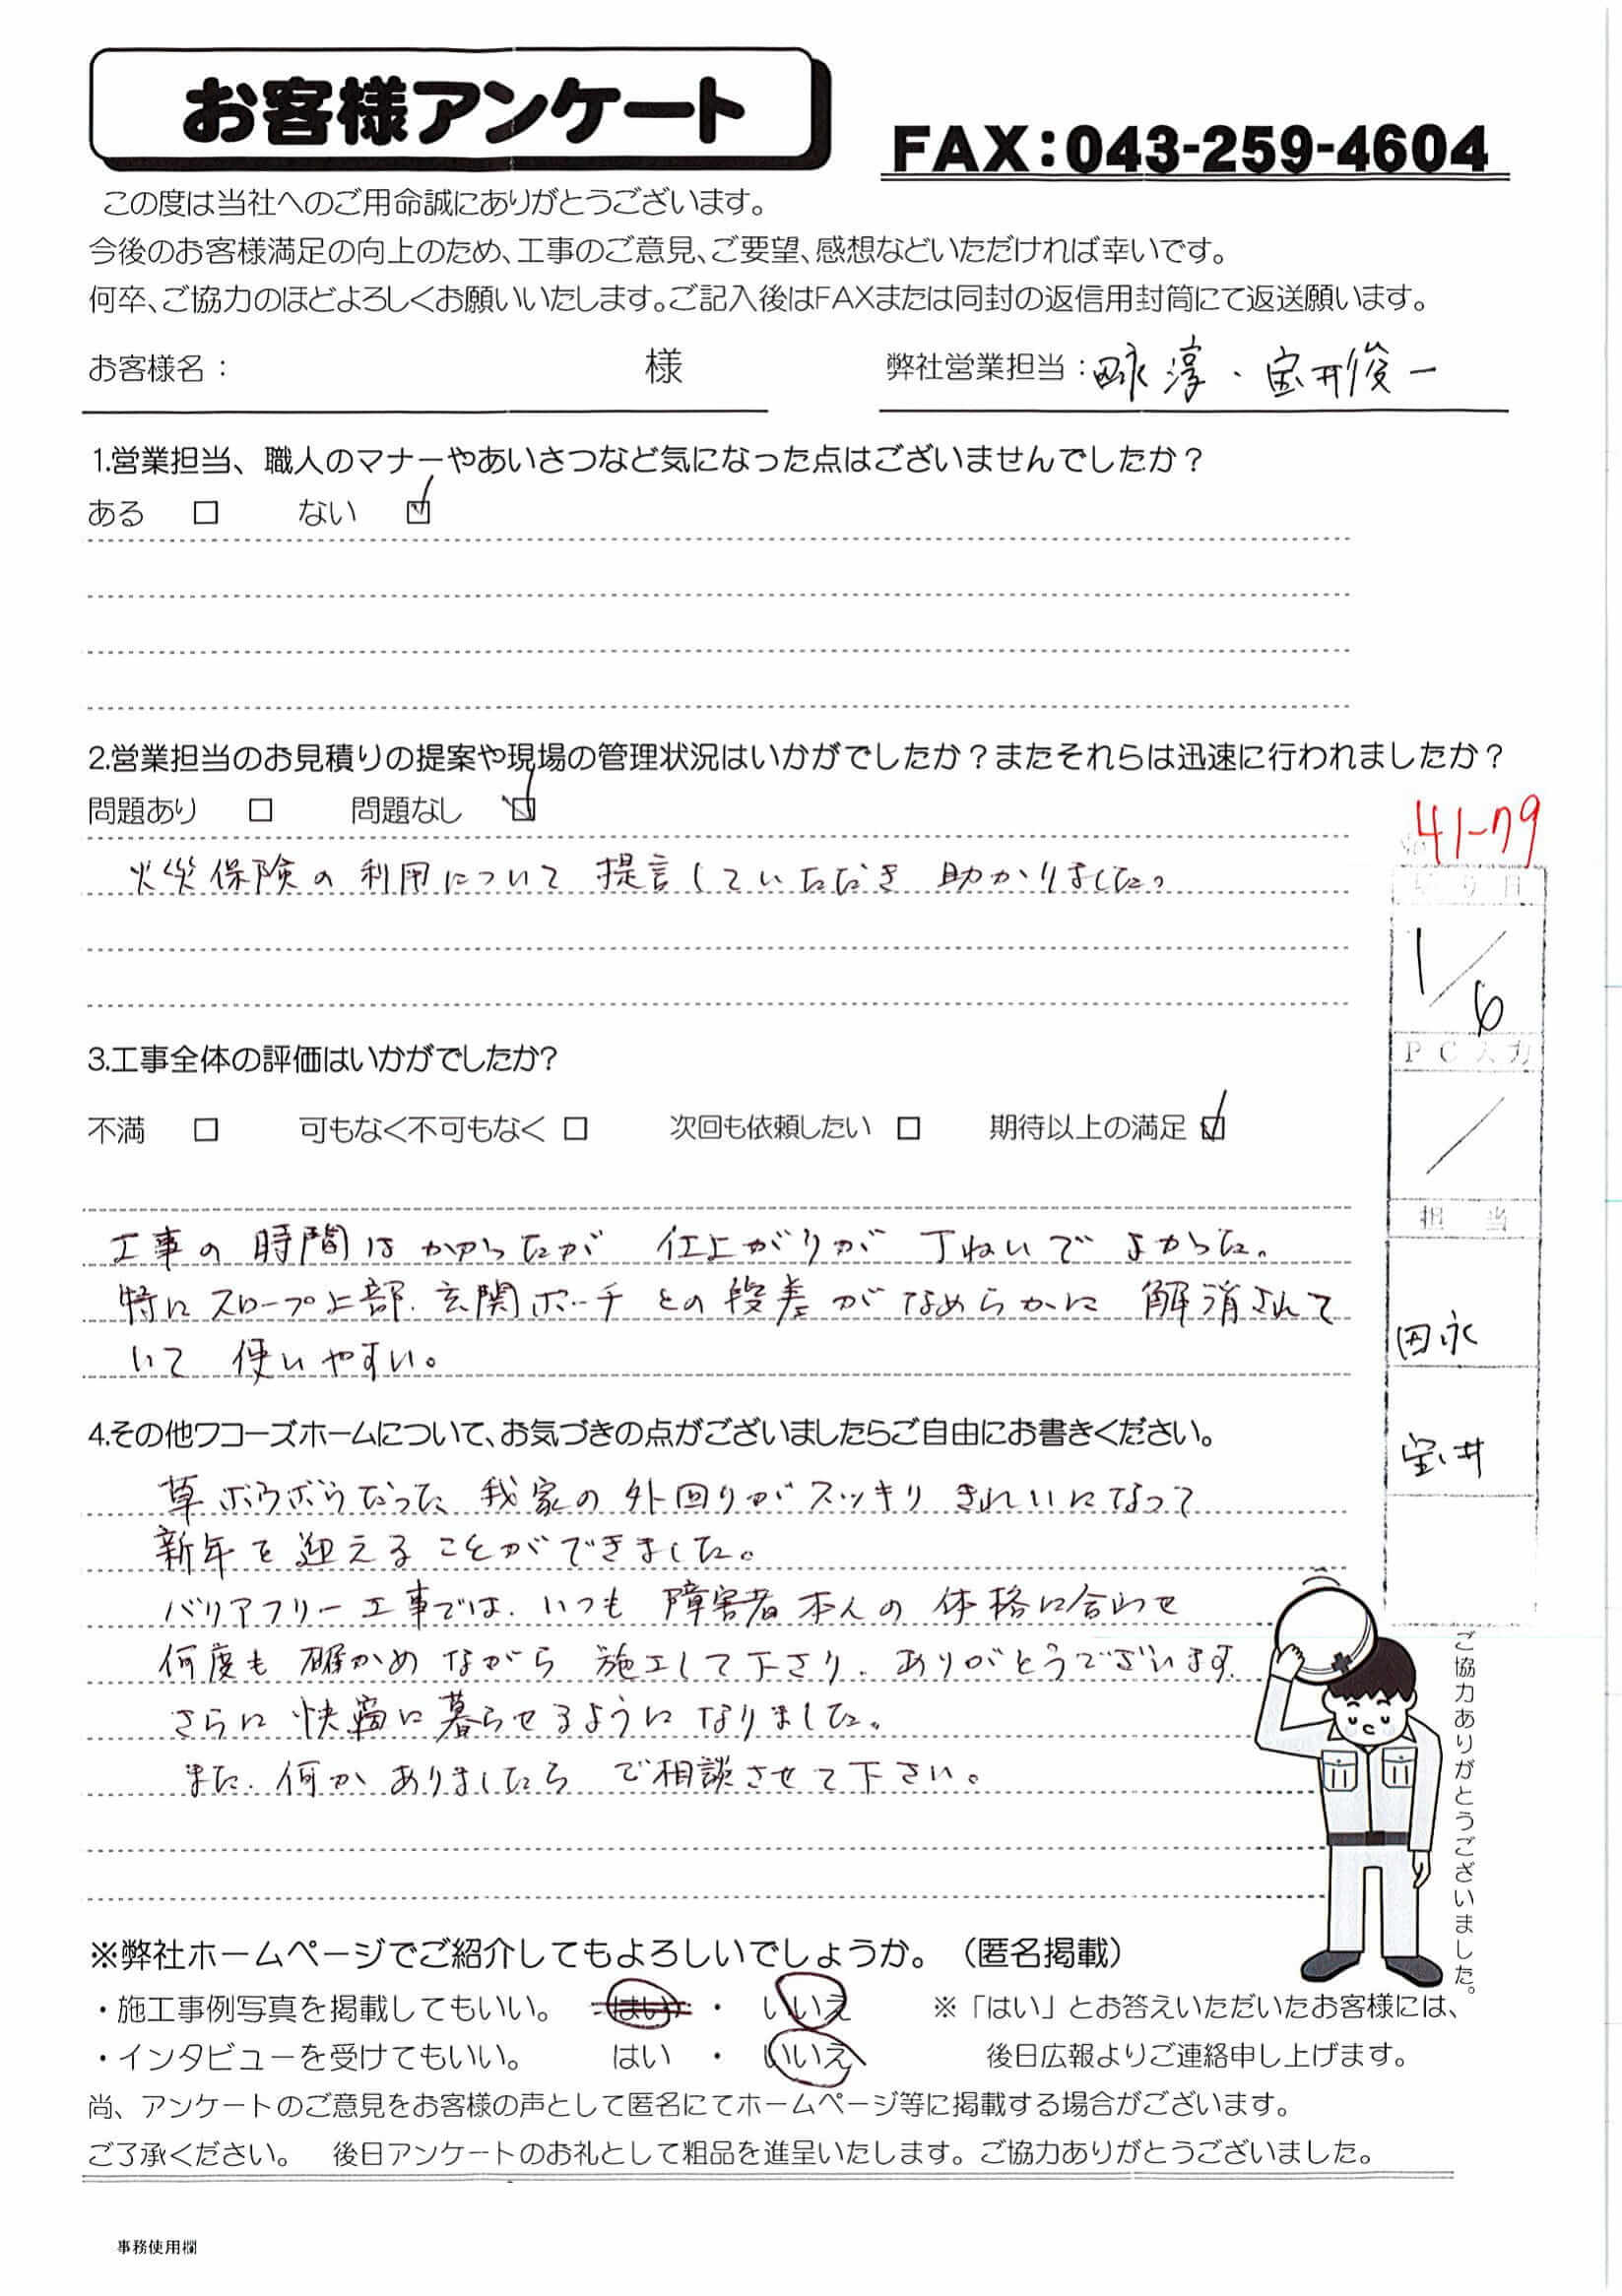 お客様アンケート
FAX:043-259-4604
この度は当社へのご用命誠にありがとうございます。
今後のお客様満足の向上のため、工事のご意見、ご要望、感想などいただければ幸いです。
何卒、ご協力のほどよろしくお願いいたします。ご記入後はFAXまたは同封の返信用封筒にて返送願います。
お客様名： 様 弊社営業担当：田永 淳・宝井俊一
1.営業担当、職人のマナーやあいさつなど気になった点はございませんでしたか？
ある □ ない ☑
2.営業担当のお見積りの提案や現場の管理状況はいかがでしたか？またそれらは迅速に行われましたか？
問題あり □ 問題なし ☑
火災保険の利用について 提言していただき 助かりました。
3.工事全体の評価はいかがでしたか?
不満 □ 可もなく不可もなく □ 次回も依頼したい □ 期待以上の満足 ☑
工事の時間はかかったが 仕上がりが丁ねいでよかった。
特にスロープ上部、玄関ポーチとの段差がなめらかに 解消されて
いて 使いやすい。
4.その他ワコーズホームについて、お気づきの点がございましたらご自由にお書きください。
草ボウボウだった、我家の外回りがスッキリ きれいになって
新年を迎えることができました。
バリアフリー工事では、いつも 障害者本人の 体格に合わせ
何度も 確かめながら 施工して下さり、ありがとうございます。
さらに 快適に暮らせるようになりました。
また、何かありましたら ご相談させて下さい。
41-79
1/6
PC入力
/
担当
田永
宝井
ご協力ありがとうございました。
※弊社ホームページでご紹介してもよろしいでしょうか。（匿名掲載）
・施工事例写真を掲載してもいい。 はい ・ いいえ ※「はい」とお答えいただいたお客様には、
・インタビューを受けてもいい。 はい ・ いいえ 後日広報よりご連絡申し上げます。
尚、アンケートのご意見をお客様の声として匿名にてホームページ等に掲載する場合がございます。
ご了承ください。 後日アンケートのお礼として粗品を進呈いたします。ご協力ありがとうございました。
事務使用欄